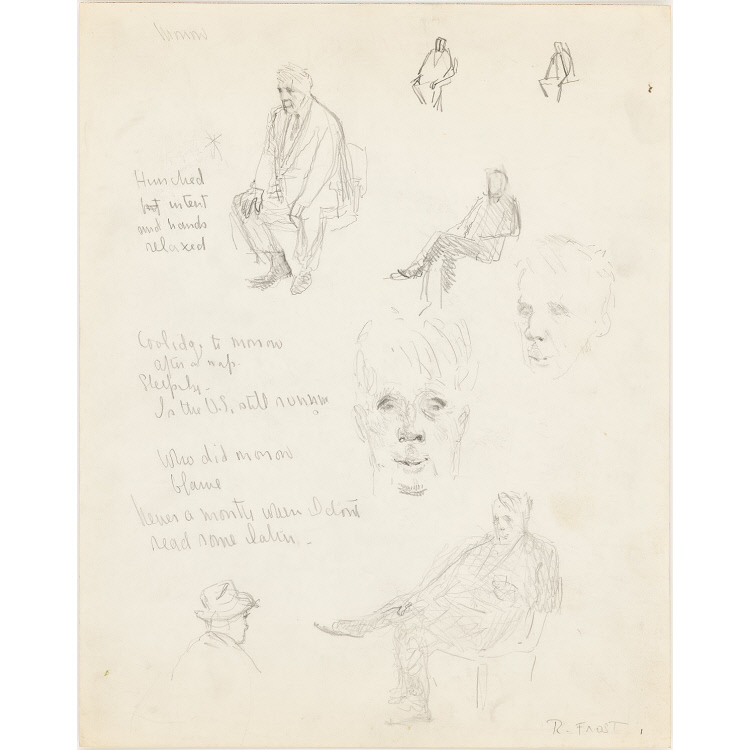 Morrow
Hunched
but intent
and hands
relaxed
Coolidge to morrow
after a nap.
Sleepily -
Is the U.S. still running
Who did morrow
blame
Never a month when I don't
read some latin -
R. Frost